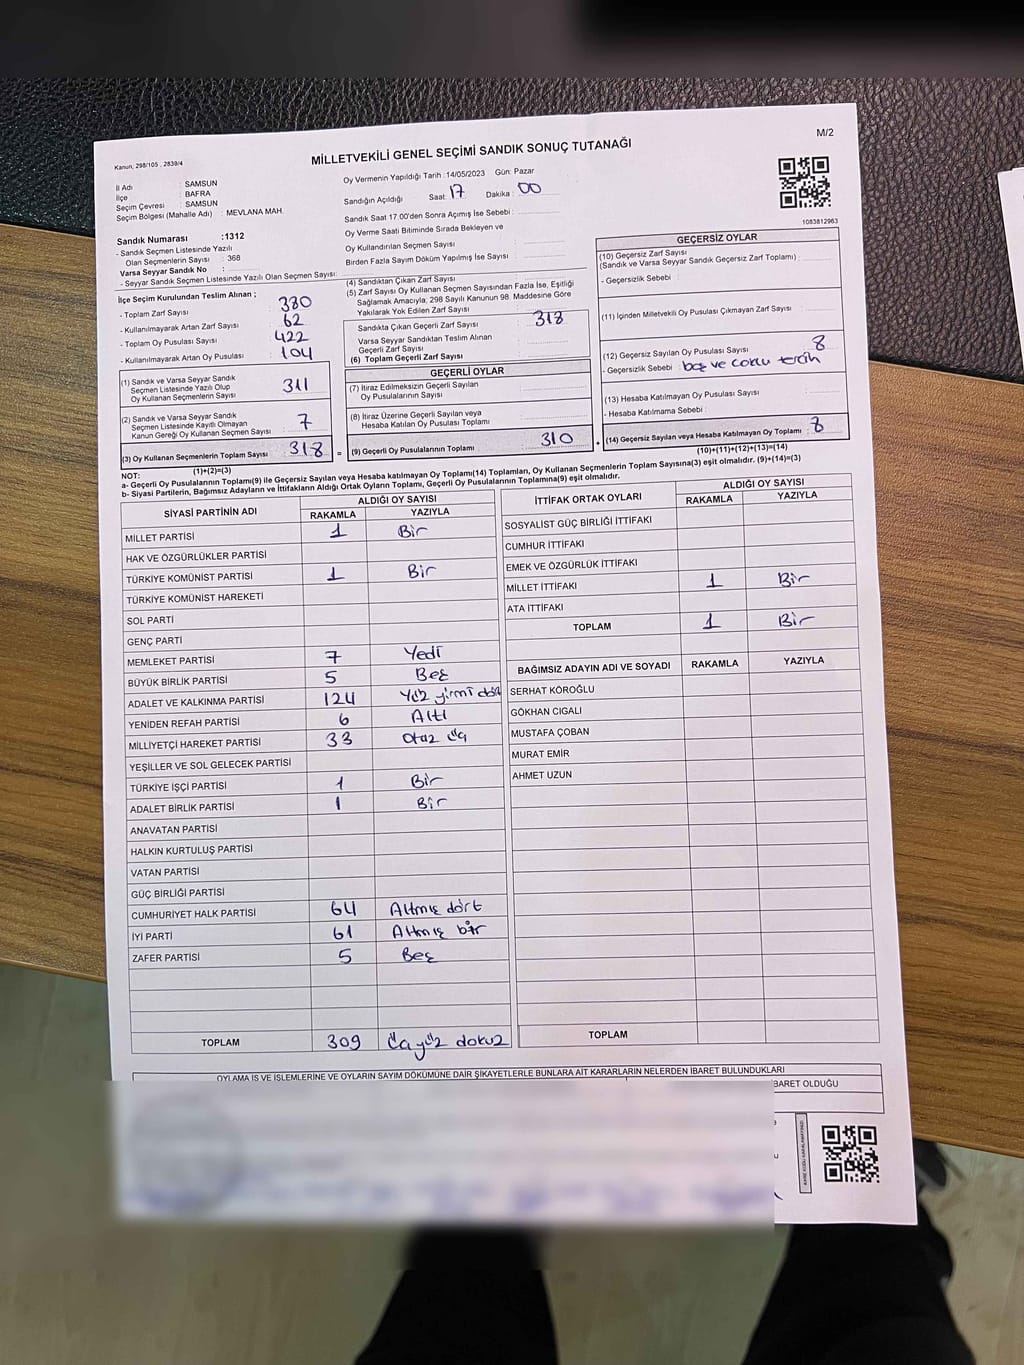 M/2
Kanun, 298/105 , 2839/4
MİLLETVEKİLİ GENEL SEÇİMİ SANDIK SONUÇ TUTANAĞI
İl Adı : SAMSUN
İlçe : BAFRA
Seçim Çevresi : SAMSUN
Seçim Bölgesi (Mahalle Adı) : MEVLANA MAH.
Sandık Numarası :1312
- Sandık Seçmen Listesinde Yazılı
Olan Seçmenlerin Sayısı : 368
Varsa Seyyar Sandık No :
- Seyyar Sandık Seçmen Listesinde Yazılı Olan Seçmen Sayısı:
Oy Vermenin Yapıldığı Tarih :14/05/2023 Gün: Pazar
Sandığın Açıldığı Saat: 17 Dakika: 00
Sandık Saat 17.00'den Sonra Açımış İse Sebebi :
Oy Verme Saati Bitiminde Sırada Bekleyen ve
Oy Kullandırılan Seçmen Sayısı :
Birden Fazla Sayım Döküm Yapılmış İse Sayısı :
1083812963
İlçe Seçim Kurulundan Teslim Alınan ;
- Toplam Zarf Sayısı : 380
- Kullanılmayarak Artan Zarf Sayısı : 62
- Toplam Oy Pusulası Sayısı : 422
- Kullanılmayarak Artan Oy Pusulası : 104
(1) Sandık ve Varsa Seyyar Sandık
Seçmen Listesinde Yazılı Olup
Oy Kullanan Seçmenlerin Sayısı : 311
(2) Sandık ve Varsa Seyyar Sandık
Seçmen Listesinde Kayıtlı Olmayan
Kanun Gereği Oy Kullanan Seçmen Sayısı : 7
(3) Oy Kullanan Seçmenlerin Toplam Sayısı : 318
(1)+(2)=(3)
(4) Sandıktan Çıkan Zarf Sayısı :
(5) Zarf Sayısı Oy Kullanan Seçmen Sayısından Fazla İse, Eşitliği
Sağlamak Amacıyla, 298 Sayılı Kanunun 98. Maddesine Göre
Yakılarak Yok Edilen Zarf Sayısı :
Sandıkta Çıkan Geçerli Zarf Sayısı : 318
Varsa Seyyar Sandıktan Teslim Alınan
Geçerli Zarf Sayısı :
(6) Toplam Geçerli Zarf Sayısı :
GEÇERLİ OYLAR
(7) İtiraz Edilmeksizin Geçerli Sayılan
Oy Pusulalarının Sayısı :
(8) İtiraz Üzerine Geçerli Sayılan veya
Hesaba Katılan Oy Pusulası Toplamı :
= (9) Geçerli Oy Pusulalarının Toplamı : 310 +
GEÇERSİZ OYLAR
(10) Geçersiz Zarf Sayısı
(Sandık ve Varsa Seyyar Sandık Geçersiz Zarf Toplamı) :
- Geçersizlik Sebebi :
(11) İçinden Milletvekili Oy Pusulası Çıkmayan Zarf Sayısı :
(12) Geçersiz Sayılan Oy Pusulası Sayısı : 8
- Geçersizlik Sebebi : boş ve çoklu tercih
(13) Hesaba Katılmayan Oy Pusulası Sayısı :
- Hesaba Katılmama Sebebi :
(14) Geçersiz Sayılan veya Hesaba Katılmayan Oy Toplamı : 8
(10)+(11)+(12)+(13)=(14)
NOT:
a- Geçerli Oy Pusulalarının Toplamı(9) ile Geçersiz Sayılan veya Hesaba katılmayan Oy Toplamı(14) Toplamları, Oy Kullanan Seçmenlerin Toplam Sayısına(3) eşit olmalıdır. (9)+(14)=(3)
b- Siyasi Partilerin, Bağımsız Adayların ve İttifakların Aldığı Ortak Oyların Toplamı, Geçerli Oy Pusulalarının Toplamına(9) eşit olmalıdır.
SİYASİ PARTİNİN ADI ALDIĞI OY SAYISI
RAKAMLA YAZIYLA
MİLLET PARTİSİ 1 Bir
HAK VE ÖZGÜRLÜKLER PARTİSİ
TÜRKİYE KOMÜNİST PARTİSİ 1 Bir
TÜRKİYE KOMÜNİST HAREKETİ
SOL PARTİ
GENÇ PARTİ
MEMLEKET PARTİSİ 7 Yedi
BÜYÜK BİRLİK PARTİSİ 5 Beş
ADALET VE KALKINMA PARTİSİ 124 Yüz yirmi dört
YENİDEN REFAH PARTİSİ 6 Altı
MİLLİYETÇİ HAREKET PARTİSİ 33 Otuz üç
YEŞİLLER VE SOL GELECEK PARTİSİ
TÜRKİYE İŞÇİ PARTİSİ 1 Bir
ADALET BİRLİK PARTİSİ 1 Bir
ANAVATAN PARTİSİ
HALKIN KURTULUŞ PARTİSİ
VATAN PARTİSİ
GÜÇ BİRLİĞİ PARTİSİ
CUMHURİYET HALK PARTİSİ 64 Altmış dört
İYİ PARTİ 61 Altmış bir
ZAFER PARTİSİ 5 Beş
TOPLAM 309 Üçyüz dokuz
İTTİFAK ORTAK OYLARI ALDIĞI OY SAYISI
RAKAMLA YAZIYLA
SOSYALİST GÜÇ BİRLİĞİ İTTİFAKI
CUMHUR İTTİFAKI
EMEK VE ÖZGÜRLÜK İTTİFAKI
MİLLET İTTİFAKI 1 Bir
ATA İTTİFAKI
TOPLAM 1 Bir
BAĞIMSIZ ADAYIN ADI VE SOYADI RAKAMLA YAZIYLA
SERHAT KÖROĞLU
GÖKHAN CIGALI
MUSTAFA ÇOBAN
MURAT EMİR
AHMET UZUN
TOPLAM
OYLAMA İŞ VE İŞLEMLERİNE VE OYLARIN SAYIM DÖKÜMÜNE DAİR ŞİKAYETLERLE BUNLARA AİT KARARLARIN NELERDEN İBARET BULUNDUKLARI
BARET OLDUĞU